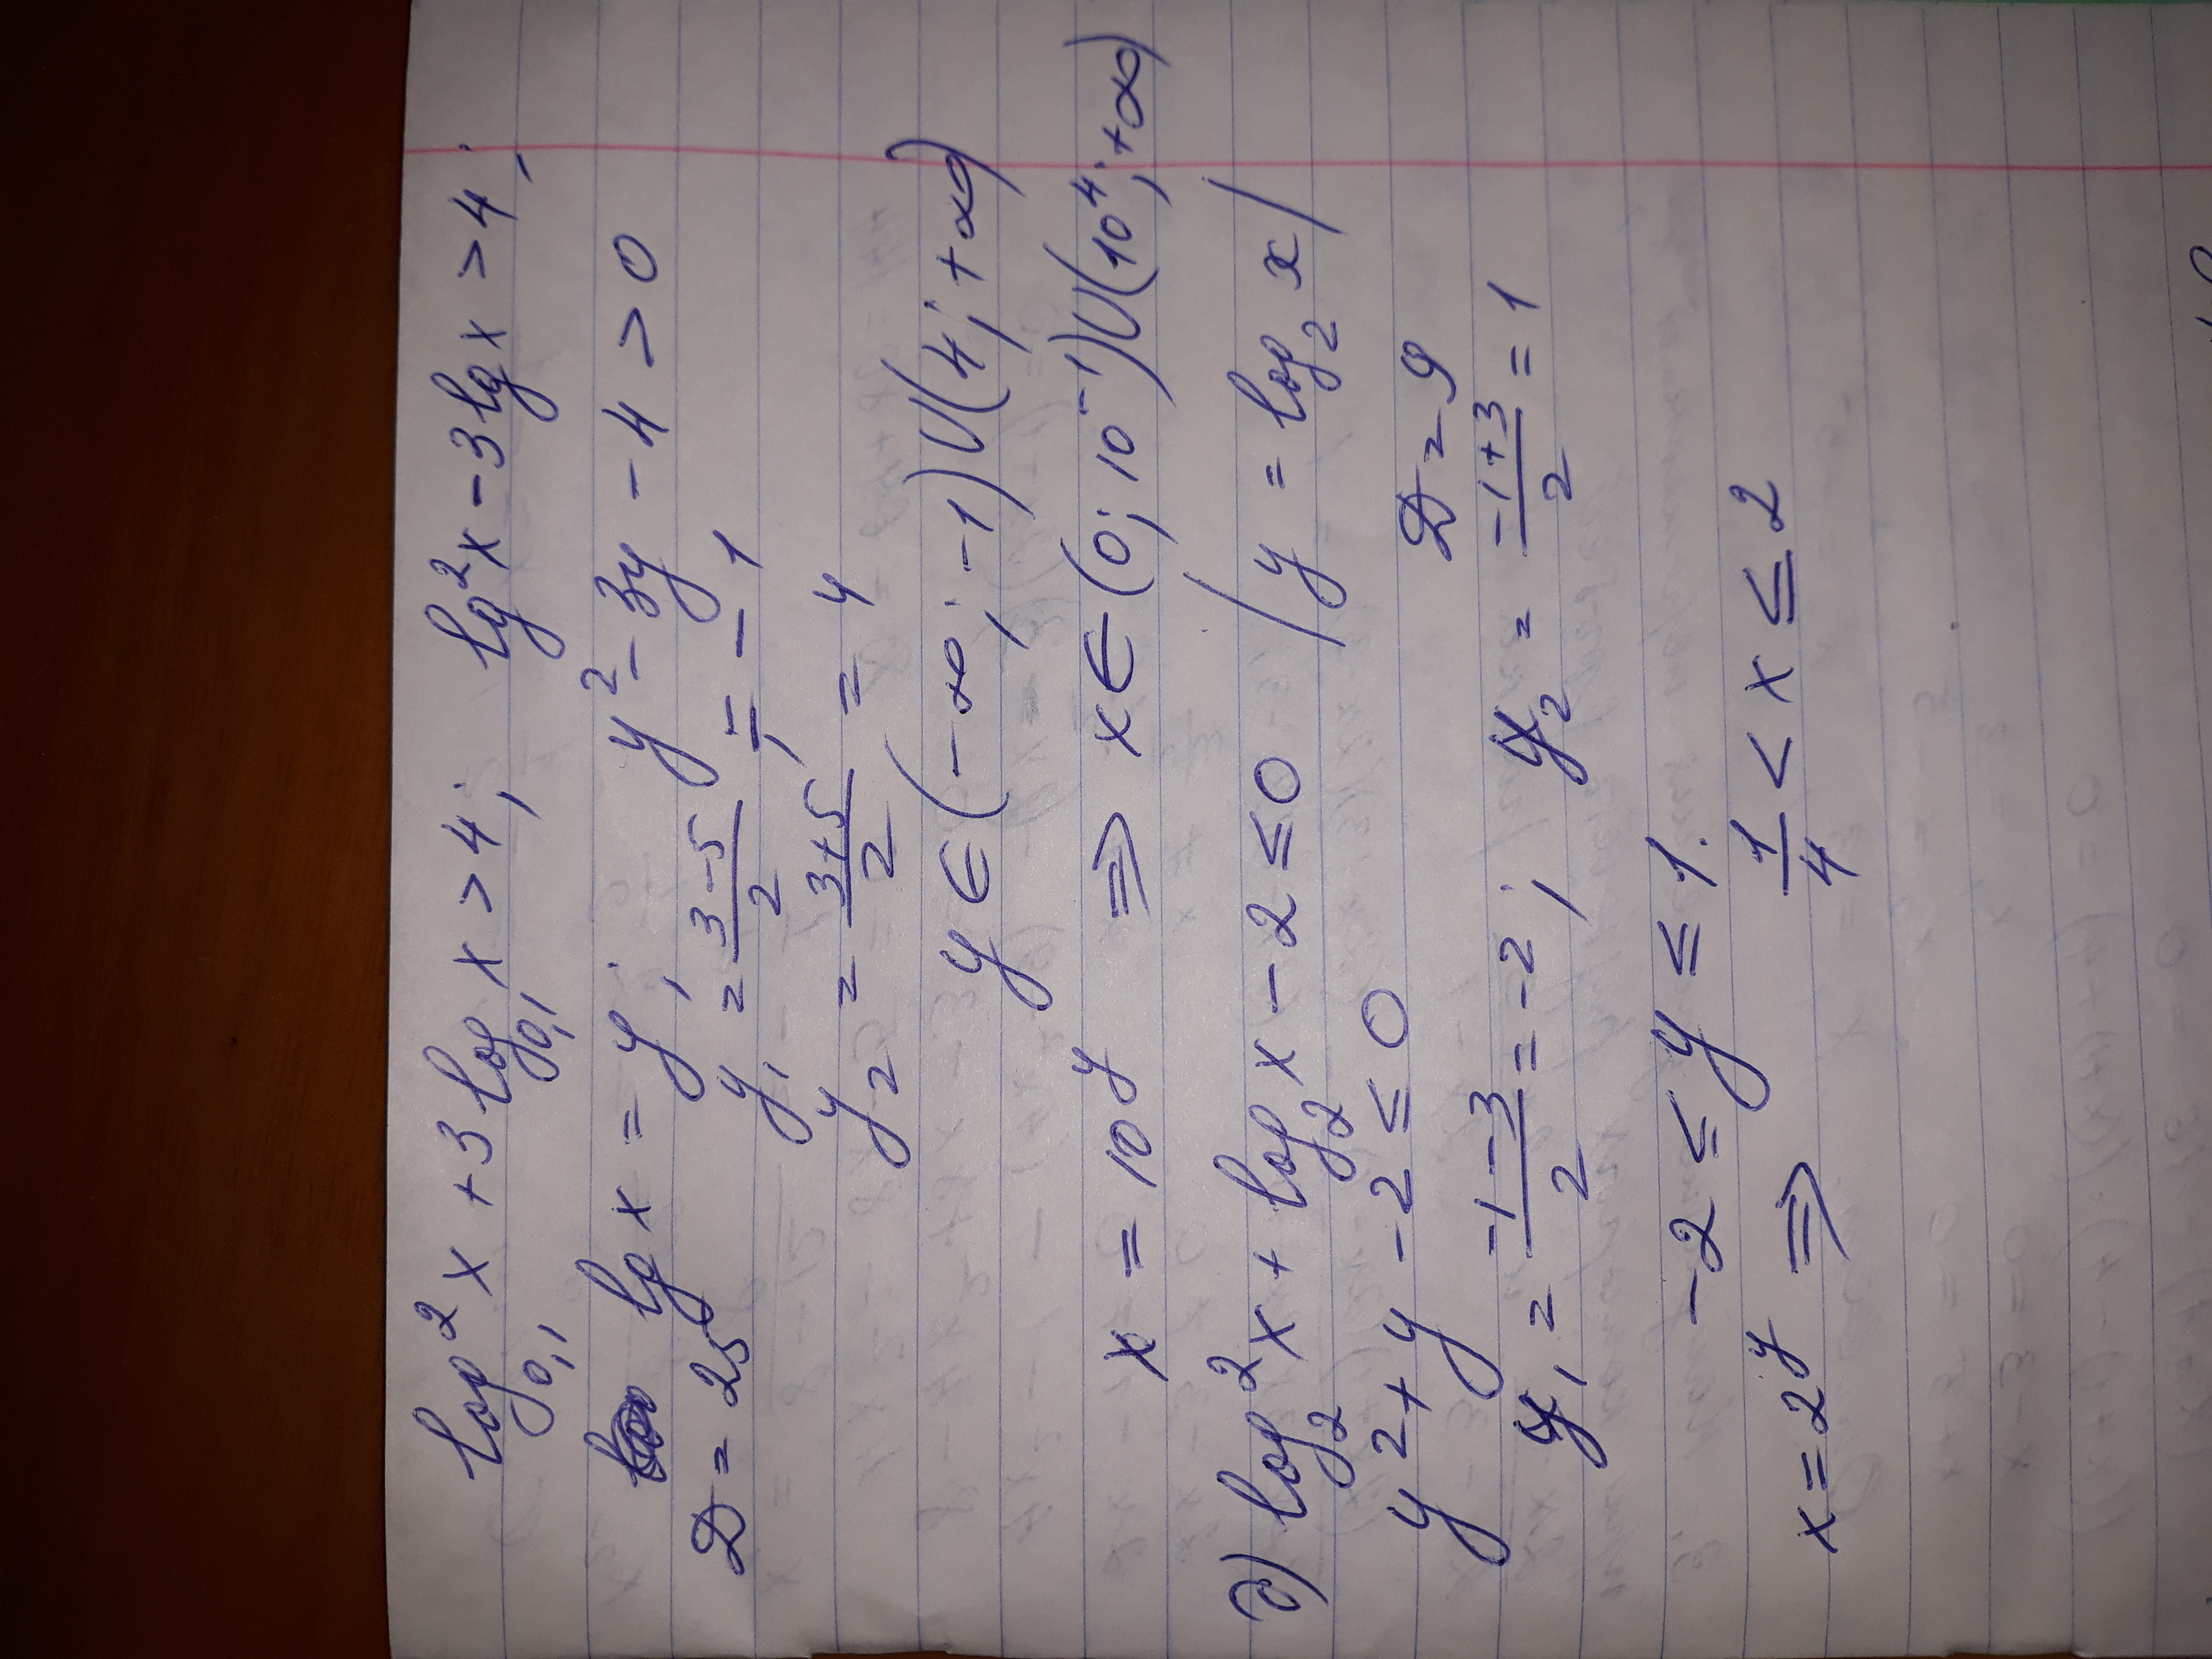 log²₀,₁ x + 3 log₀,₁ x > 4; lg² x - 3 lg x > 4;
lg x = y; y² - 3y - 4 > 0
D = 25 y₁ = (3-5)/2 = -1;
y₂ = (3+5)/2 = 4
y ∈ (-∞; -1) ∪ (4; +∞)
x = 10^y ⇒ x ∈ (0; 10⁻¹) ∪ (10⁴; +∞)
д) log₂² x + log₂ x - 2 ≤ 0 / y = log₂ x /
y² + y - 2 ≤ 0 D = 9
y₁ = (-1-3)/2 = -2; y₂ = (-1+3)/2 = 1
-2 ≤ y ≤ 1.
x = 2^y ⇒ 1/4 < x ≤ 2